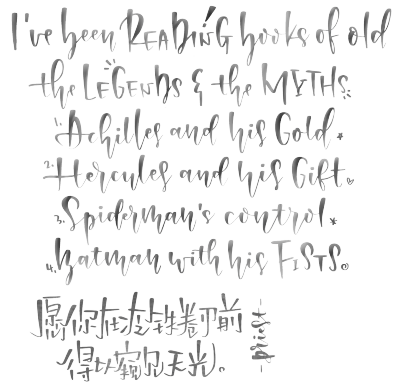 I've been READING books of old
the LEGENDS & the MYTHS
1. Achilles and his Gold.
2. Hercules and his Gift.
3. Spiderman's control
4. Batman with his FISTS.
愿你在冷铁卷刃前
得以窥见天光。
-priest-